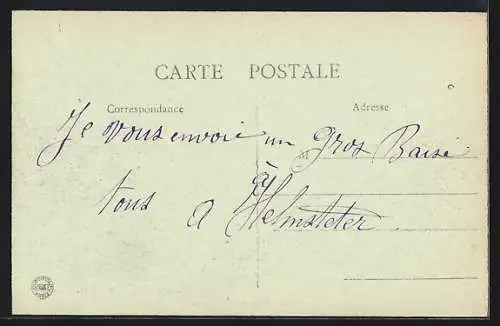 CARTE POSTALE
Correspondance Adresse
Je vous envoie un gros Baisé
M
à
tous A Helmsteter